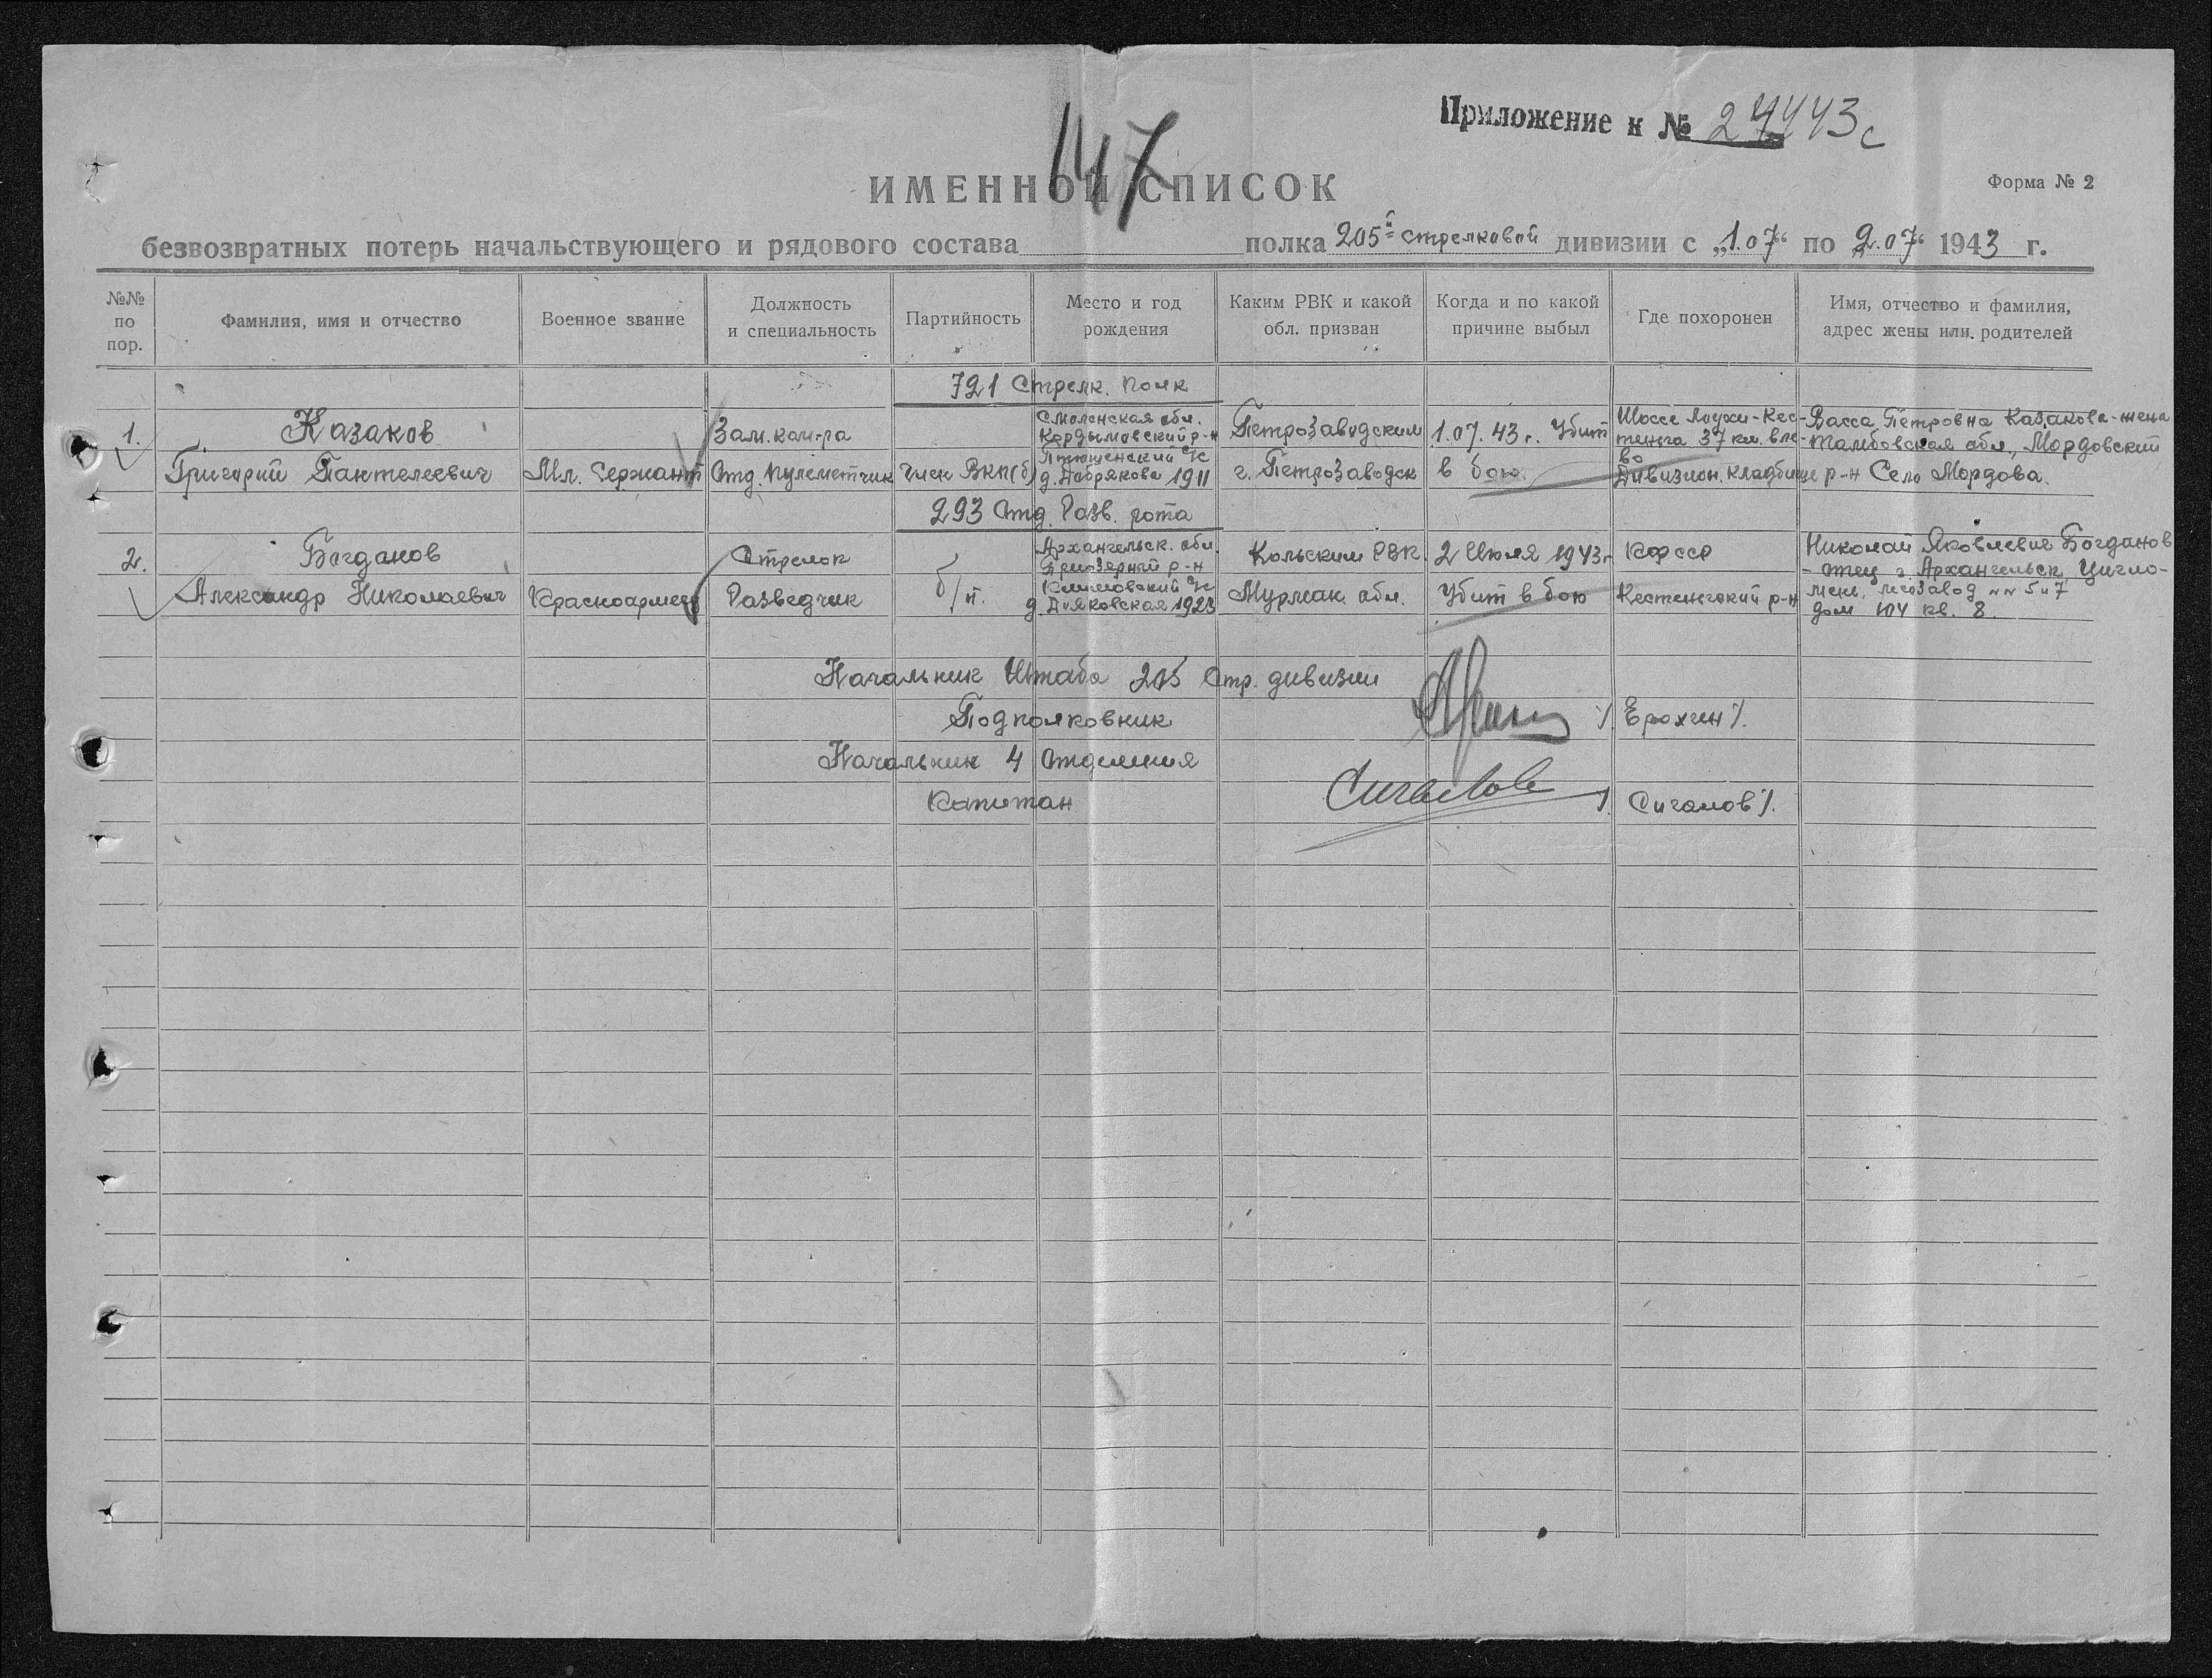 Приложение к № 27443с
147
ИМЕННОЙ СПИСОК
Форма № 2
безвозвратных потерь начальствующего и рядового состава полка 205й стрелковой дивизии с „1.07“ по „2.07“ 1943 г.
№№ по пор.
Фамилия, имя и отчество
Военное звание
Должность и специальность
Партийность
Место и год рождения
Каким РВК и какой обл. призван
Когда и по какой причине выбыл
Где похоронен
Имя, отчество и фамилия, адрес жены или родителей
721 Стрелк. полк
1.
Казаков
Григорий Пантелеевич
Мл. Сержант
Зам. ком-ра
Отд. пулеметчик
Член ВКП(б)
Смоленская обл.
Кардымовский р-н
с/с
д. Добрякова 1911
Петрозаводским
г. Петрозаводск
1.07.43 г. Убит
в бою
Шоссе Лоухи-Кес-
теньга 37 км. вле-
во
Дивизион. кладбище
Васса Петровна Казакова-жена
Тамбовская обл., Мордовский
р-н Село Мордова.
293 Отд. Разв. рота
2.
Богданов
Александр Николаевич
Красноармеец
Стрелок
Разведчик
б/п.
Архангельск. обл.
Приозерный р-н
с/с
д. Дьяковская 1923
Кольским РВК
Мурман. обл.
2 Июля 1943г
Убит в бою
КФССР
Кестеньгский р-н
Николай Яковлевич Богданов
- отец г. Архангельск Цигло-
мень, лесозавод №№ 5 и 7
дом 104 кв. 8.
Начальник Штаба 205 Стр. дивизии
Подполковник /Ерохин/.
Начальник 4 Отделения
Капитан Сигалов /Сигалов/.